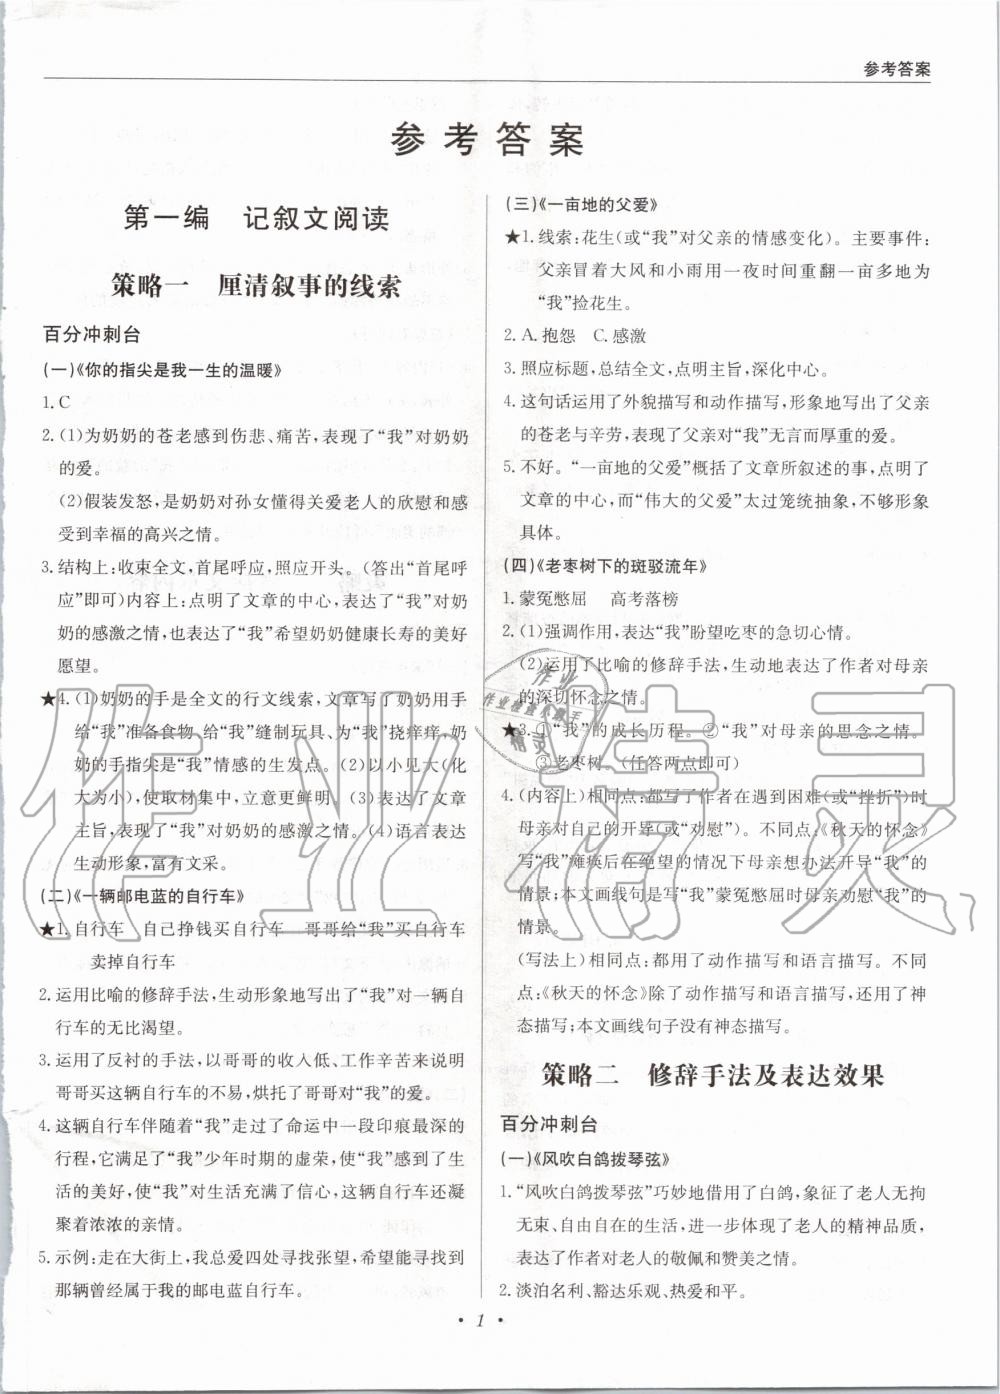 参考答案
参考答案
第一编　记叙文阅读
策略一　厘清叙事的线索
百分冲刺台
(一)《你的指尖是我一生的温暖》
1. C
2. (1)为奶奶的苍老感到伤悲、痛苦，表现了“我”对奶奶
的爱。
(2)假装发怒，是奶奶对孙女懂得关爱老人的欣慰和感
受到幸福的高兴之情。
3. 结构上：收束全文，首尾呼应，照应开头。（答出“首尾呼
应”即可）内容上：点明了文章的中心，表达了“我”对奶
奶的感激之情，也表达了“我”希望奶奶健康长寿的美好
愿望。
★4. (1)奶奶的手是全文的行文线索，文章写了奶奶用手
给“我”准备食物、给“我”缝制玩具、为“我”挠痒痒，奶
奶的手指尖是“我”情感的生发点。(2)以小见大（化
大为小），使取材集中，立意更鲜明。(3)表达了文章
主旨，表现了“我”对奶奶的感激之情。(4)语言表达
生动形象，富有文采。
(二)《一辆邮电蓝的自行车》
★1. 自行车　自己挣钱买自行车　哥哥给“我”买自行车
卖掉自行车
2. 运用比喻的修辞手法，生动形象地写出了“我”对一辆自
行车的无比渴望。
3. 运用了反衬的手法，以哥哥的收入低、工作辛苦来说明
哥哥买这辆自行车的不易，烘托了哥哥对“我”的爱。
4. 这辆自行车伴随着“我”走过了命运中一段印痕最深的
行程，它满足了“我”少年时期的虚荣，使“我”感受到了生
活的美好，使“我”对生活充满了感激；这辆自行车还凝
聚着浓浓的亲情。
5. 示例：走在大街上，我总爱四处寻找张望，希望能寻找到
那辆曾经属于我的邮电蓝自行车。
(三)《一亩地的父爱》
★1. 线索：花生（或“我”对父亲的情感变化）。主要事件：
父亲冒着大风和小雨用一夜时间重翻一亩多地为
“我”捡花生。
2. A. 抱怨　C. 感激
3. 照应标题，总结全文，点明主旨，深化中心。
4. 这句话运用了外貌描写和动作描写，形象地写出了父亲
的苍老与辛劳，表现了父亲对“我”无言而厚重的爱。
5. 不好。“一亩地的父爱”概括了文章所叙述的事，点明了
文章的中心，而“伟大的父爱”太过笼统抽象，不够形象
具体。
(四)《老枣树下的斑驳流年》
1. 蒙冤憋屈　高考落榜
2. (1)强调作用，表现了“我”盼望吃枣的急切心情。
(2)运用了比喻的修辞手法，生动地表达了作者对母亲
的深切怀念之情。
★3. ①“我”的成长历程。②“我”对母亲的思念之情。
③老枣树。（任答两点即可）
4. （内容上）相同点：都写了作者在遇到困难（或“挫折”）时
母亲对自己的开导（或“劝慰”）。不同点：《秋天的怀念》
写“我”瘫痪后在绝望的情况下母亲想办法开导“我”的
情景；本文画线句是写“我”蒙冤憋屈时母亲劝慰“我”的
情景。
（写法上）相同点：都用了动作描写和语言描写。不同
点：《秋天的怀念》除了动作描写和语言描写，还用了神
态描写；本文画线句子没有神态描写。
策略二　修辞手法及表达效果
百分冲刺台
(一)《风吹白鸽拨琴弦》
1. “风吹白鸽拨琴弦”巧妙地借用了白鸽，象征了老人无拘
无束、自由自在的生活，进一步体现了老人的精神品质，
表达了作者对老人的敬佩和赞美之情。
2. 淡泊名利、豁达乐观、热爱和平。
• 1 •
作业精灵
作业
作业检查小助手
精灵